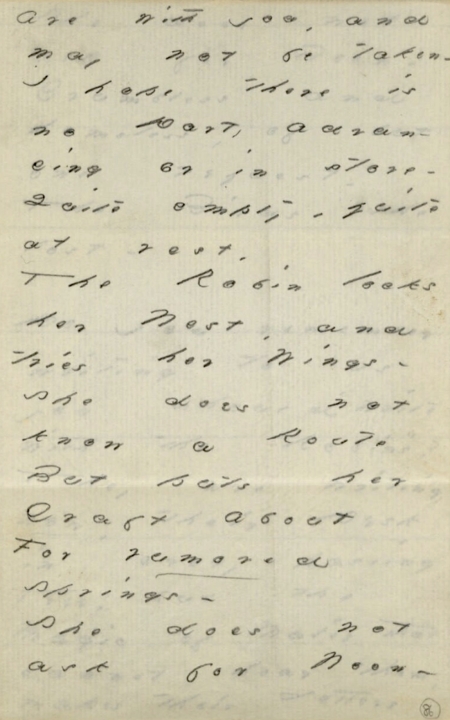 are with you, and
may not be taken -
I hope there is
no Part, advan-
cing or in store -
Quite empty, quite
at rest,
The Robin locks
her Nest, and
tries her Wings -
She does not
know a Route
But puts her
Craft about
For rumored
springs -
She does not
ask for Noon -